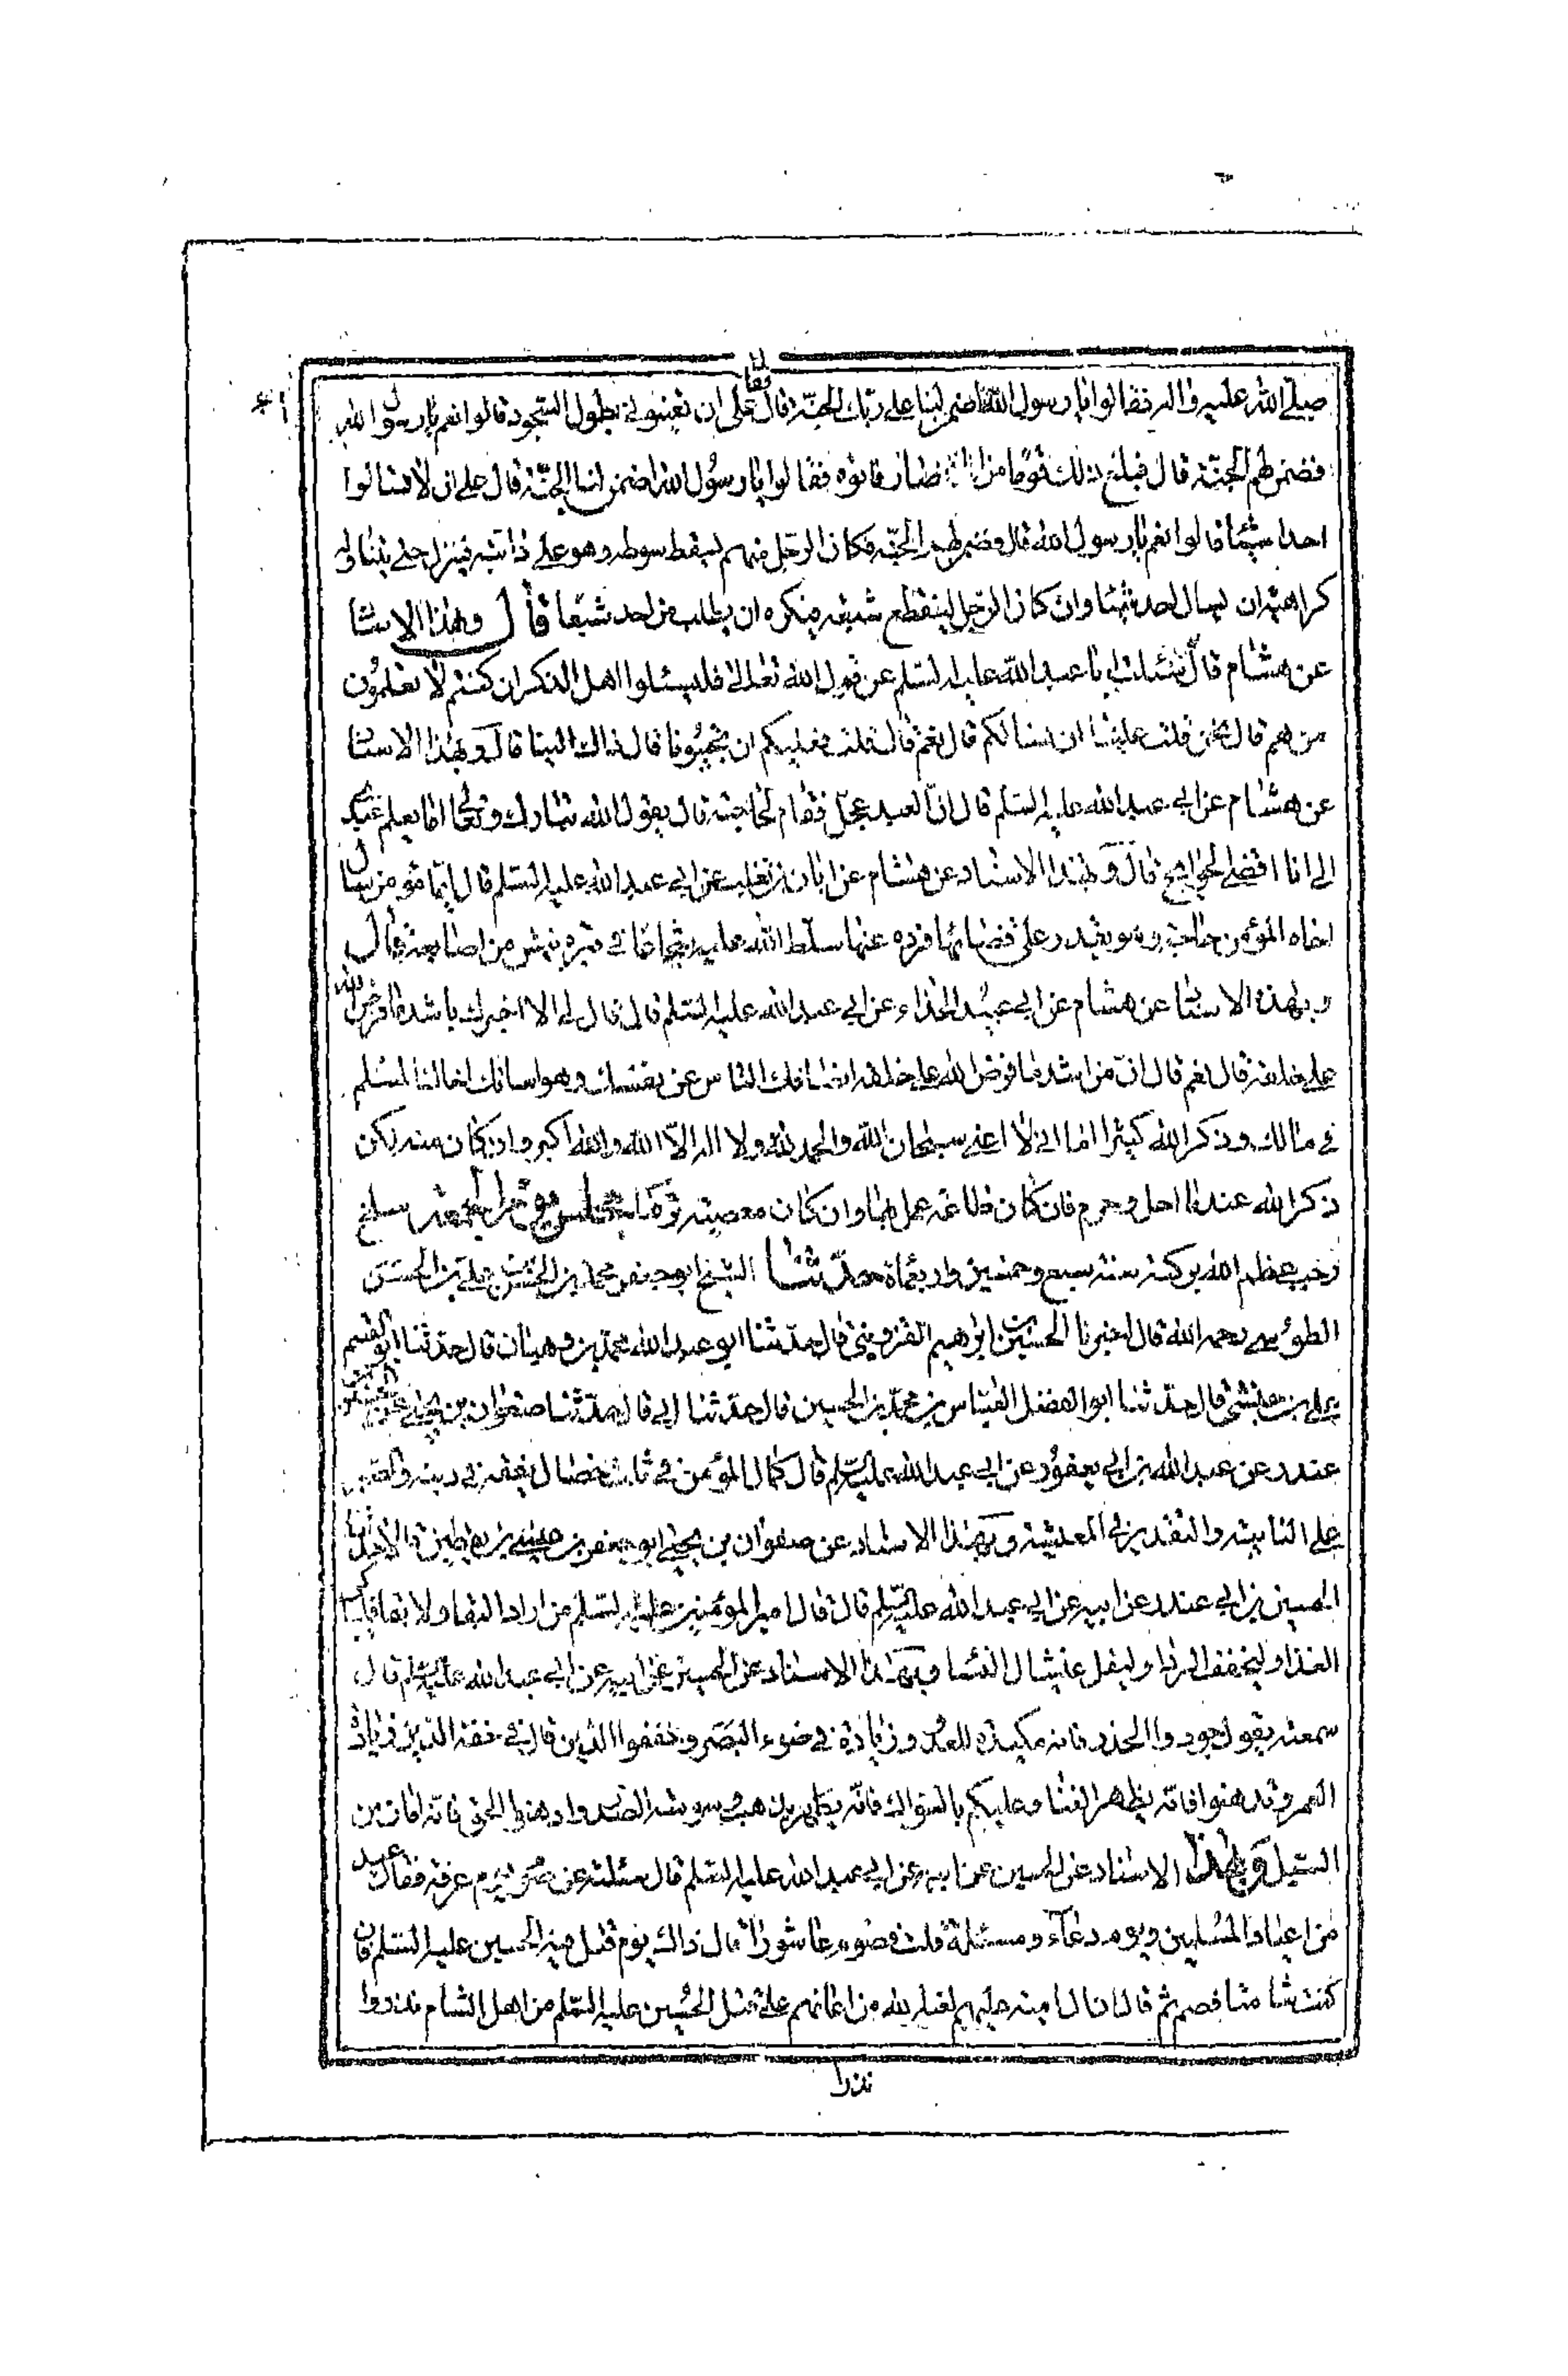 صلى الله عليه واله فقالوا يا رسول الله اضمن لنا على ربك الجنة قال فقال على ان تعينونى بطول السجود قالوا نعم يا رسول الله
فضمن لهم الجنة قال فبلغ ذلك قوما من الانصار فاتوه فقالوا يا رسول الله اضمن لنا الجنة قال على ان لا تسالوا
احدا شيئا قالوا نعم يا رسول الله قال فضمن لهم الجنة فكان الرجل منهم يسقط سوطه وهو على دابته فينزل حتى يتناوله
كراهية ان يسال احد شيئا وان كان الرجل لينقطع شسعه فيكره ان يطلب من احد شسعا قال وبهذا الاسنا
عن هشام قال سئلت ابا عبد الله عليه السلم عن قول الله تعالى فاسئلوا اهل الذكر ان كنتم لا تعلمون
من هم قال نحن قلت علينا ان نسالكم قال نعم قال قلت فعليكم ان تجيبونا قال ذاك الينا قال وبهذا الاسنا
عن هشام عن ابى عبد الله عليه السلم قال ان العبد عجل فقام لحاجته قال يقول الله تبارك وتعالى اما يعلم عبدى
انى انا اقضى الحوايج قال وبهذا الاسناد عن هشام عن ابان بن تغلب عن ابى عبد الله عليه السلم قال ايما مؤمن سال
اخاه المؤمن حاجة وهو يقدر على قضائها فرده عنها سلط الله عليه شجاعا فى قبره ينهش من اصابعه قال
وبهذا الاسنا عن هشام عن ابى عبيد الحذاء عن ابى عبد الله عليه السلم قال قال لى الا اخبرك باشد ما فرض الله
على خلقه قال نعم قال ان من اشد ما فرض الله على خلقه انصافك الناس عن نفسك ومواساتك اخاك المسلم
فى مالك وذكر الله كثيرا اما انى لا اعنى سبحان الله والحمد لله ولا اله الا الله والله اكبر وان كان منه لكن
ذكر الله عند ما احل وحرم فان كان طاعة عمل بها وان كان معصية تركها مجلس يوم الجمعة سلخ
رجب عظم الله بركته سنة سبع وخمسين واربعماة حدثنا الشيخ ابو جعفر محمد بن الحسن بن على بن الحسن
الطوسى رحمه الله قال اخبرنا الحسين بن ابرهيم القزوينى قال حدثنا ابو عبد الله محمد بن وهبان قال حدثنا ابو القسم
على بن حبشى قال حدثنا ابو الفضل العباس بن محمد بن الحسين قال حدثنا ابى قال حدثنا صفوان بن يحيى عن الحسين بن
عندر عن عبد الله بن ابى يعفور عن ابى عبد الله عليه السلم قال كمال المؤمن فى ثلث خصال تفقه فى دينه والصبر
على النائبة والتقدير فى المعيشة وبهذا الاسناد عن صفوان بن يحيى ابو جعفر بن عيسى بن يقطين قالا حدثنا
الحسين بن ابى عندر عن ابيه عن ابى عبد الله عليه السلم قال قال امير المؤمنين عليه السلم من اراد البقا ولا بقا فليباكر
الغذا وليخفف الردا وليقل غشيان النسا وبهذا الاسناد عن الحسين عن ابيه عن ابى عبد الله عليه السلم قال
سمعته يقول جودوا الحذو فانه مكيدة للعدو وزيادة فى ضوء البصر وخففوا الدين فان فى خفة الدين زيادة
العمر وتدهنوا فانه يظهر الغنا وعليكم بالسواك فانه يذهب وسوسة الصدر وادهنوا
وبهذا الاسناد عن الحسين عن ابيه عن ابى عبد الله عليه السلم قال سئلته عن صوم يوم عرفة فقال عيد
من اعياد المسلمين ويوم دعاء ومسئلة قلت فصوم عاشورا قال ذاك يوم قتل فيه الحسين عليه السلم فان
كنت شامتا فصم ثم قال ان ال امية عليهم لعنة الله ومن اعانهم على قتل الحسين عليه السلم من اهل الشام نذروا
نذرا